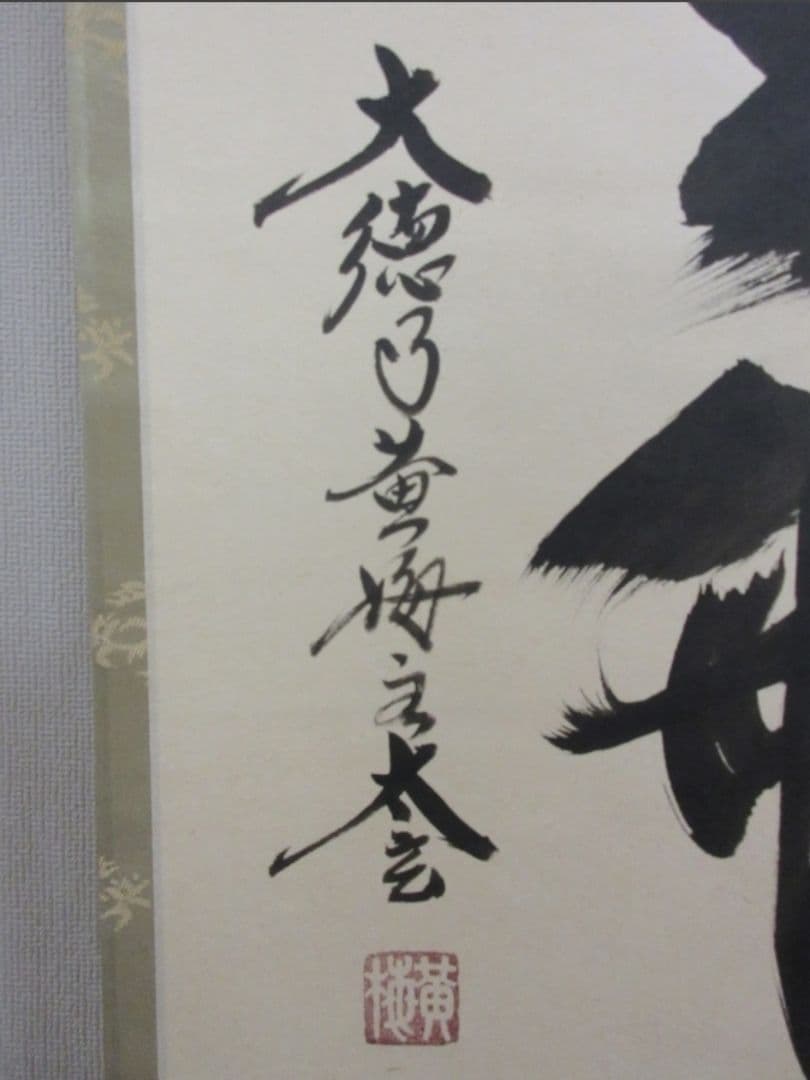 大徳黄梅主太玄
黄梅